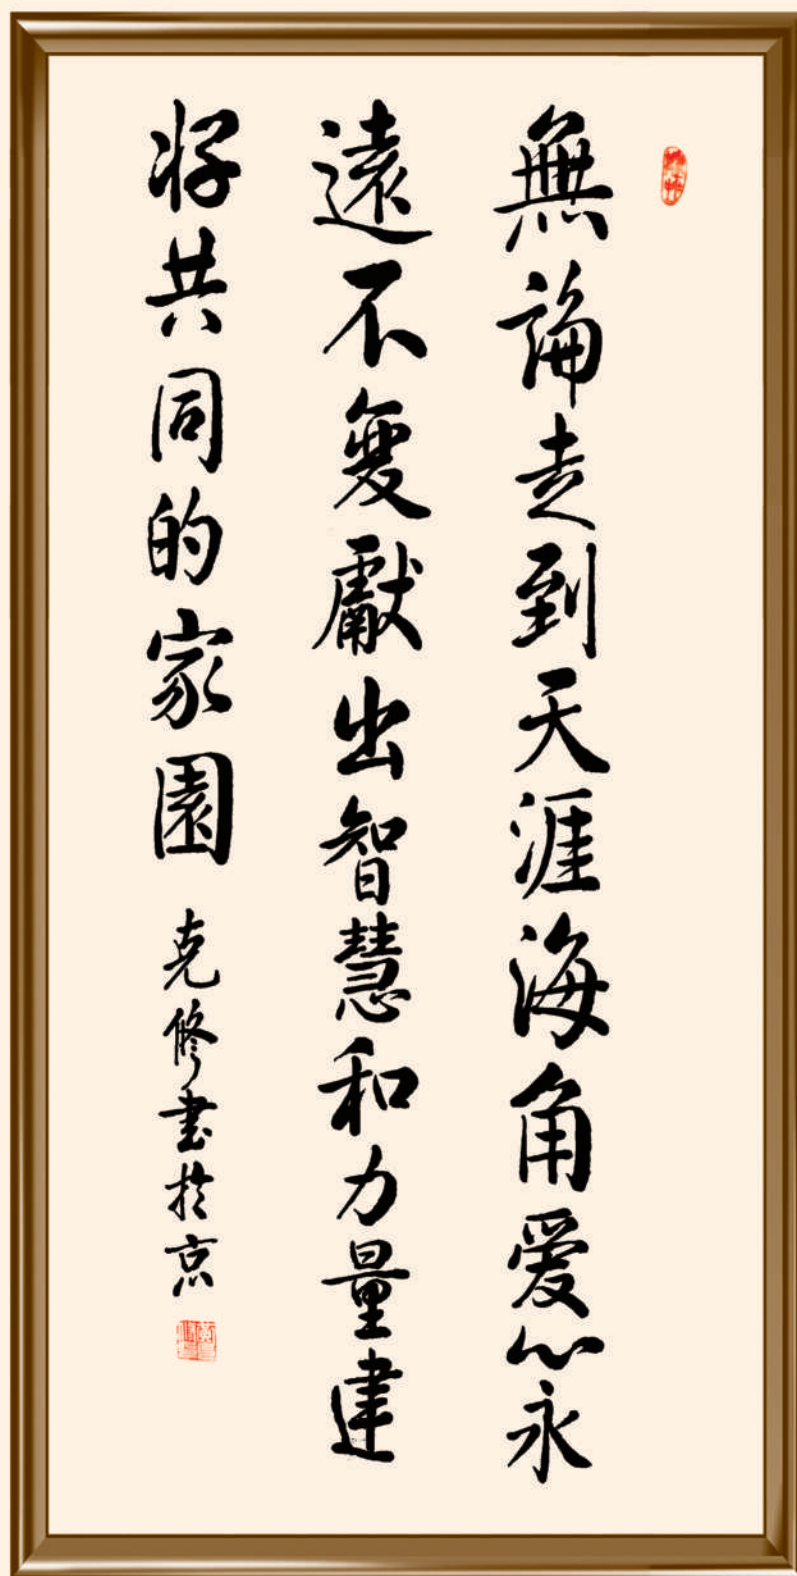 無論走到天涯海角爱心永
遠不變獻出智慧和力量建
将共同的家園
克修書於京